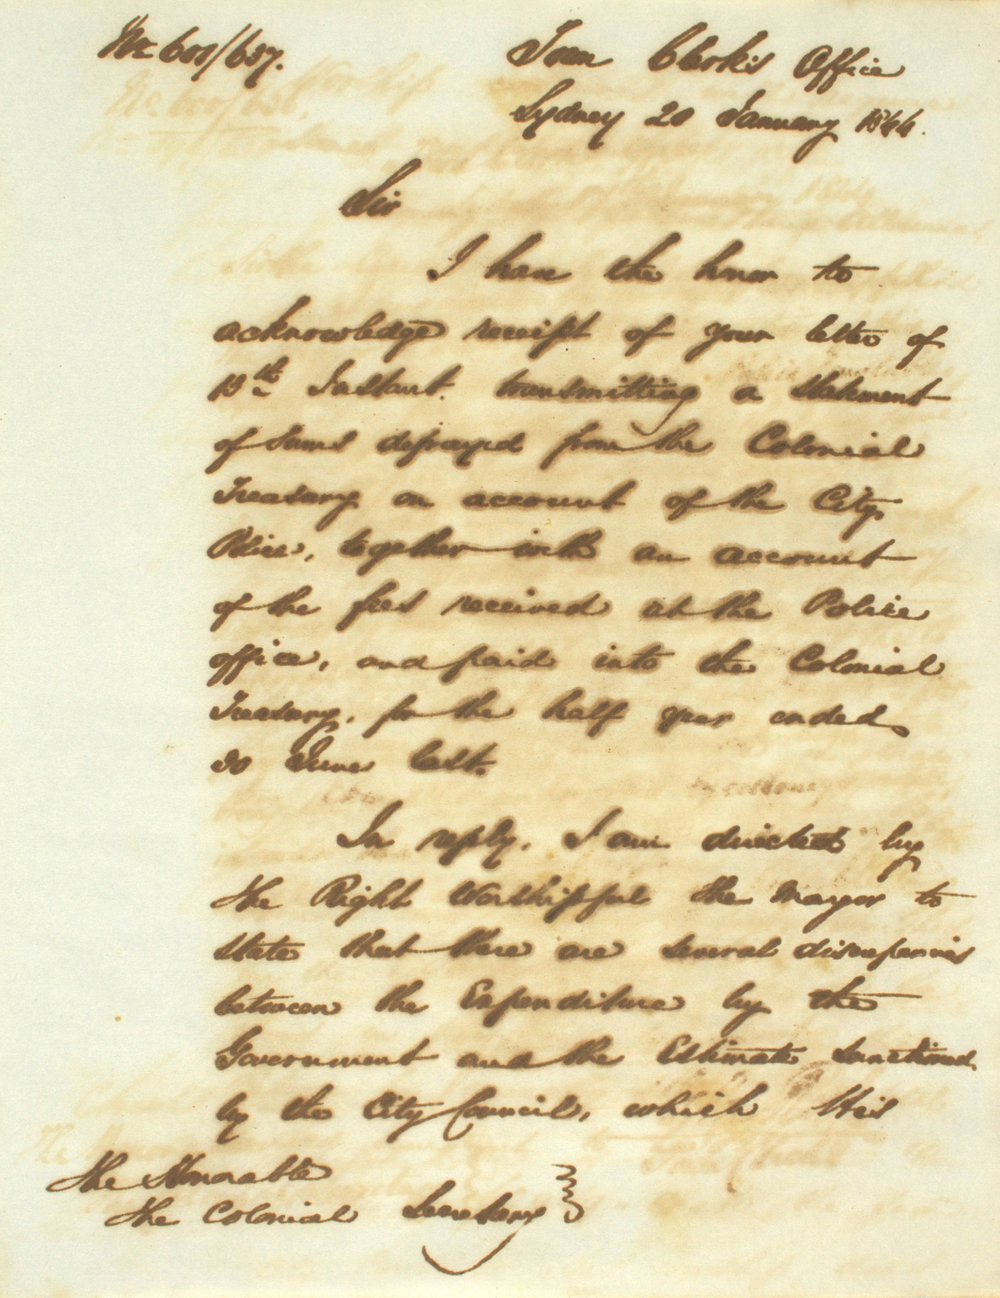 No 608/637.
Town Clerk's Office
Sydney 20 January 1844.
Sir
I have the honor to
acknowledge receipt of your letter of
13th Instant. transmitting a statement
of Sums defrayed from the Colonial
Treasury on account of the City
Police, together with an account
of the fees received at the Police
office, and paid into the Colonial
Treasury, for the half year ended
30 June last.
In reply, I am directed by
the Right Worshipful the Mayor to
state that there are several discrepancies
between the Expenditure by the
Government and the Estimate sanctioned
by the City Council, which His
The Honorable
The Colonial Secretary